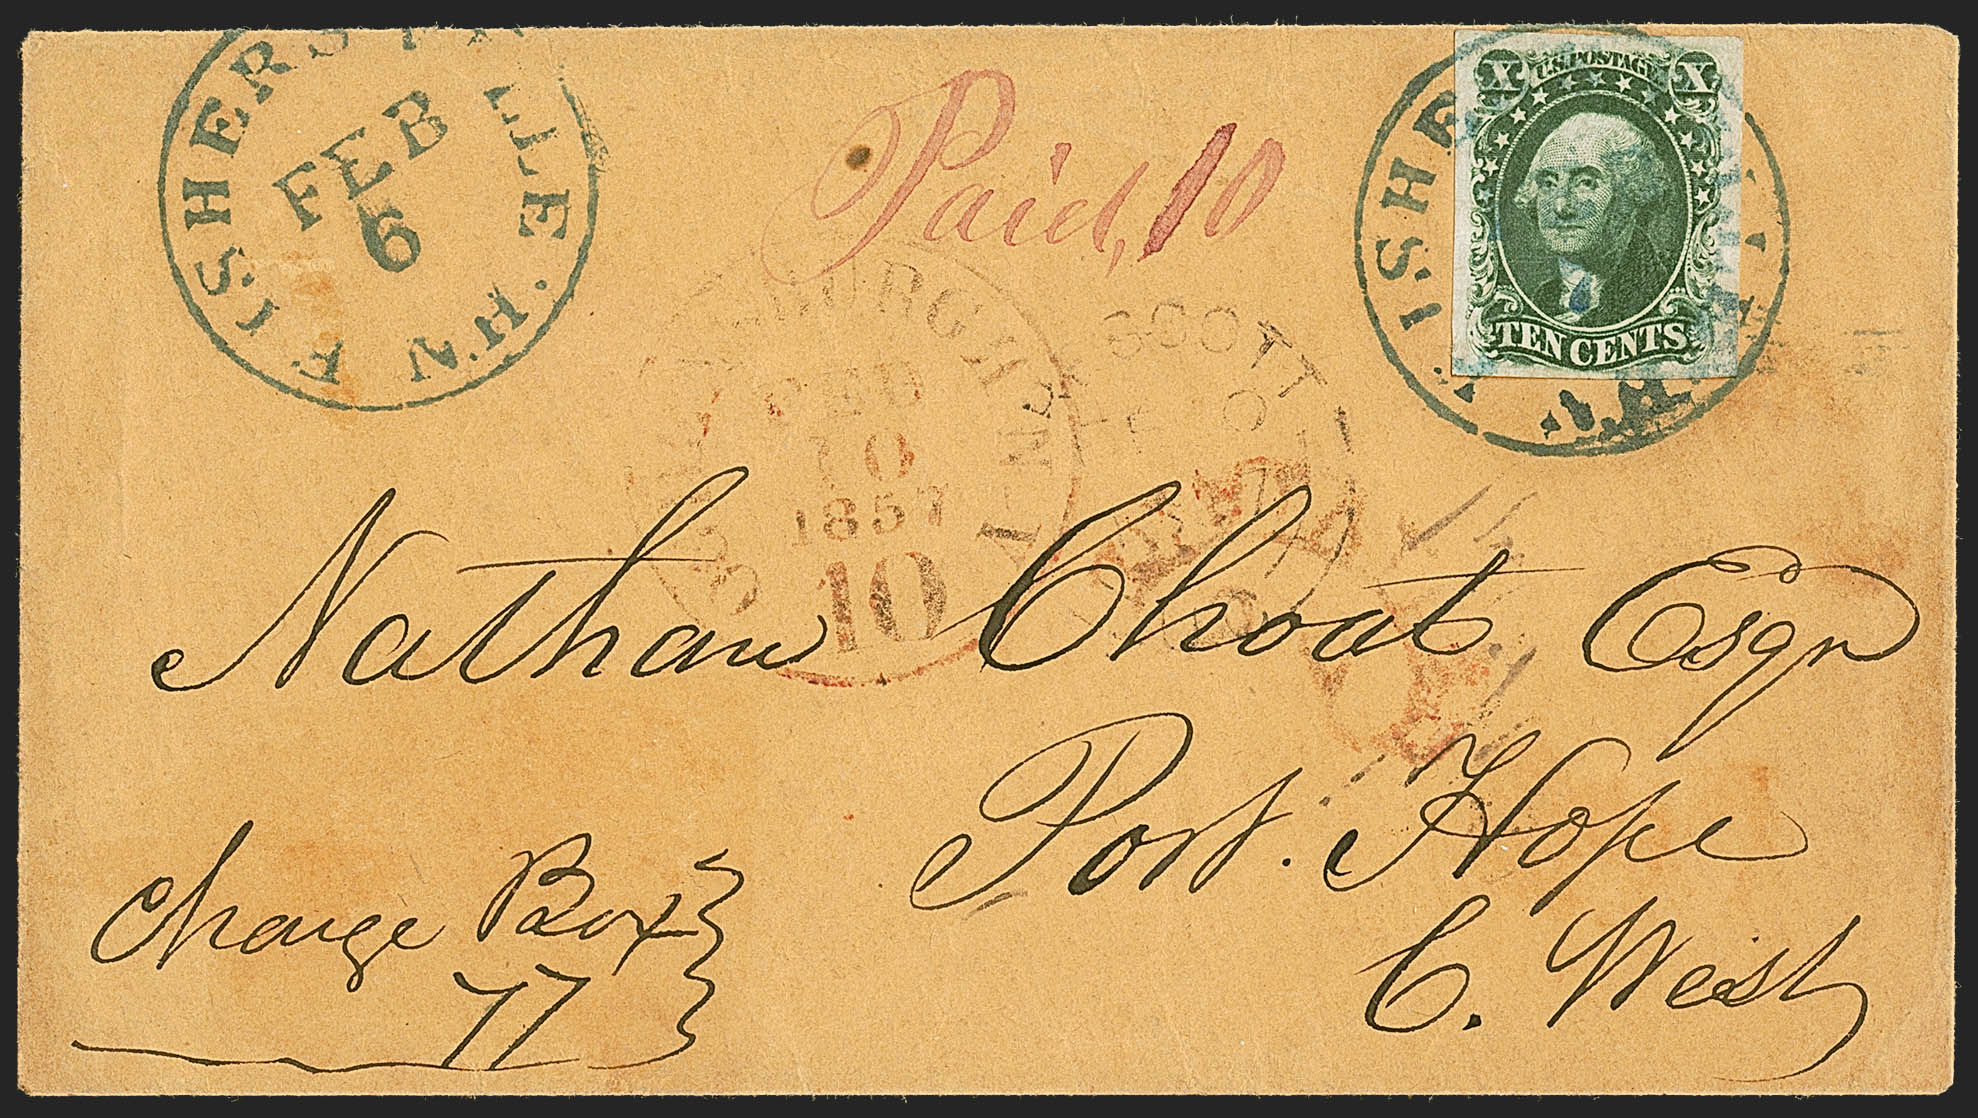 FISHERSVILLE. N.H.
FEB
6
Paid, 10
U.S. POSTAGE
X X
TEN CENTS
FISHE
FEB
10
1857
10
N.Y.
SCOTT
Nathan Choat Esqr
Port. Hope
C. West
Charge Box
77